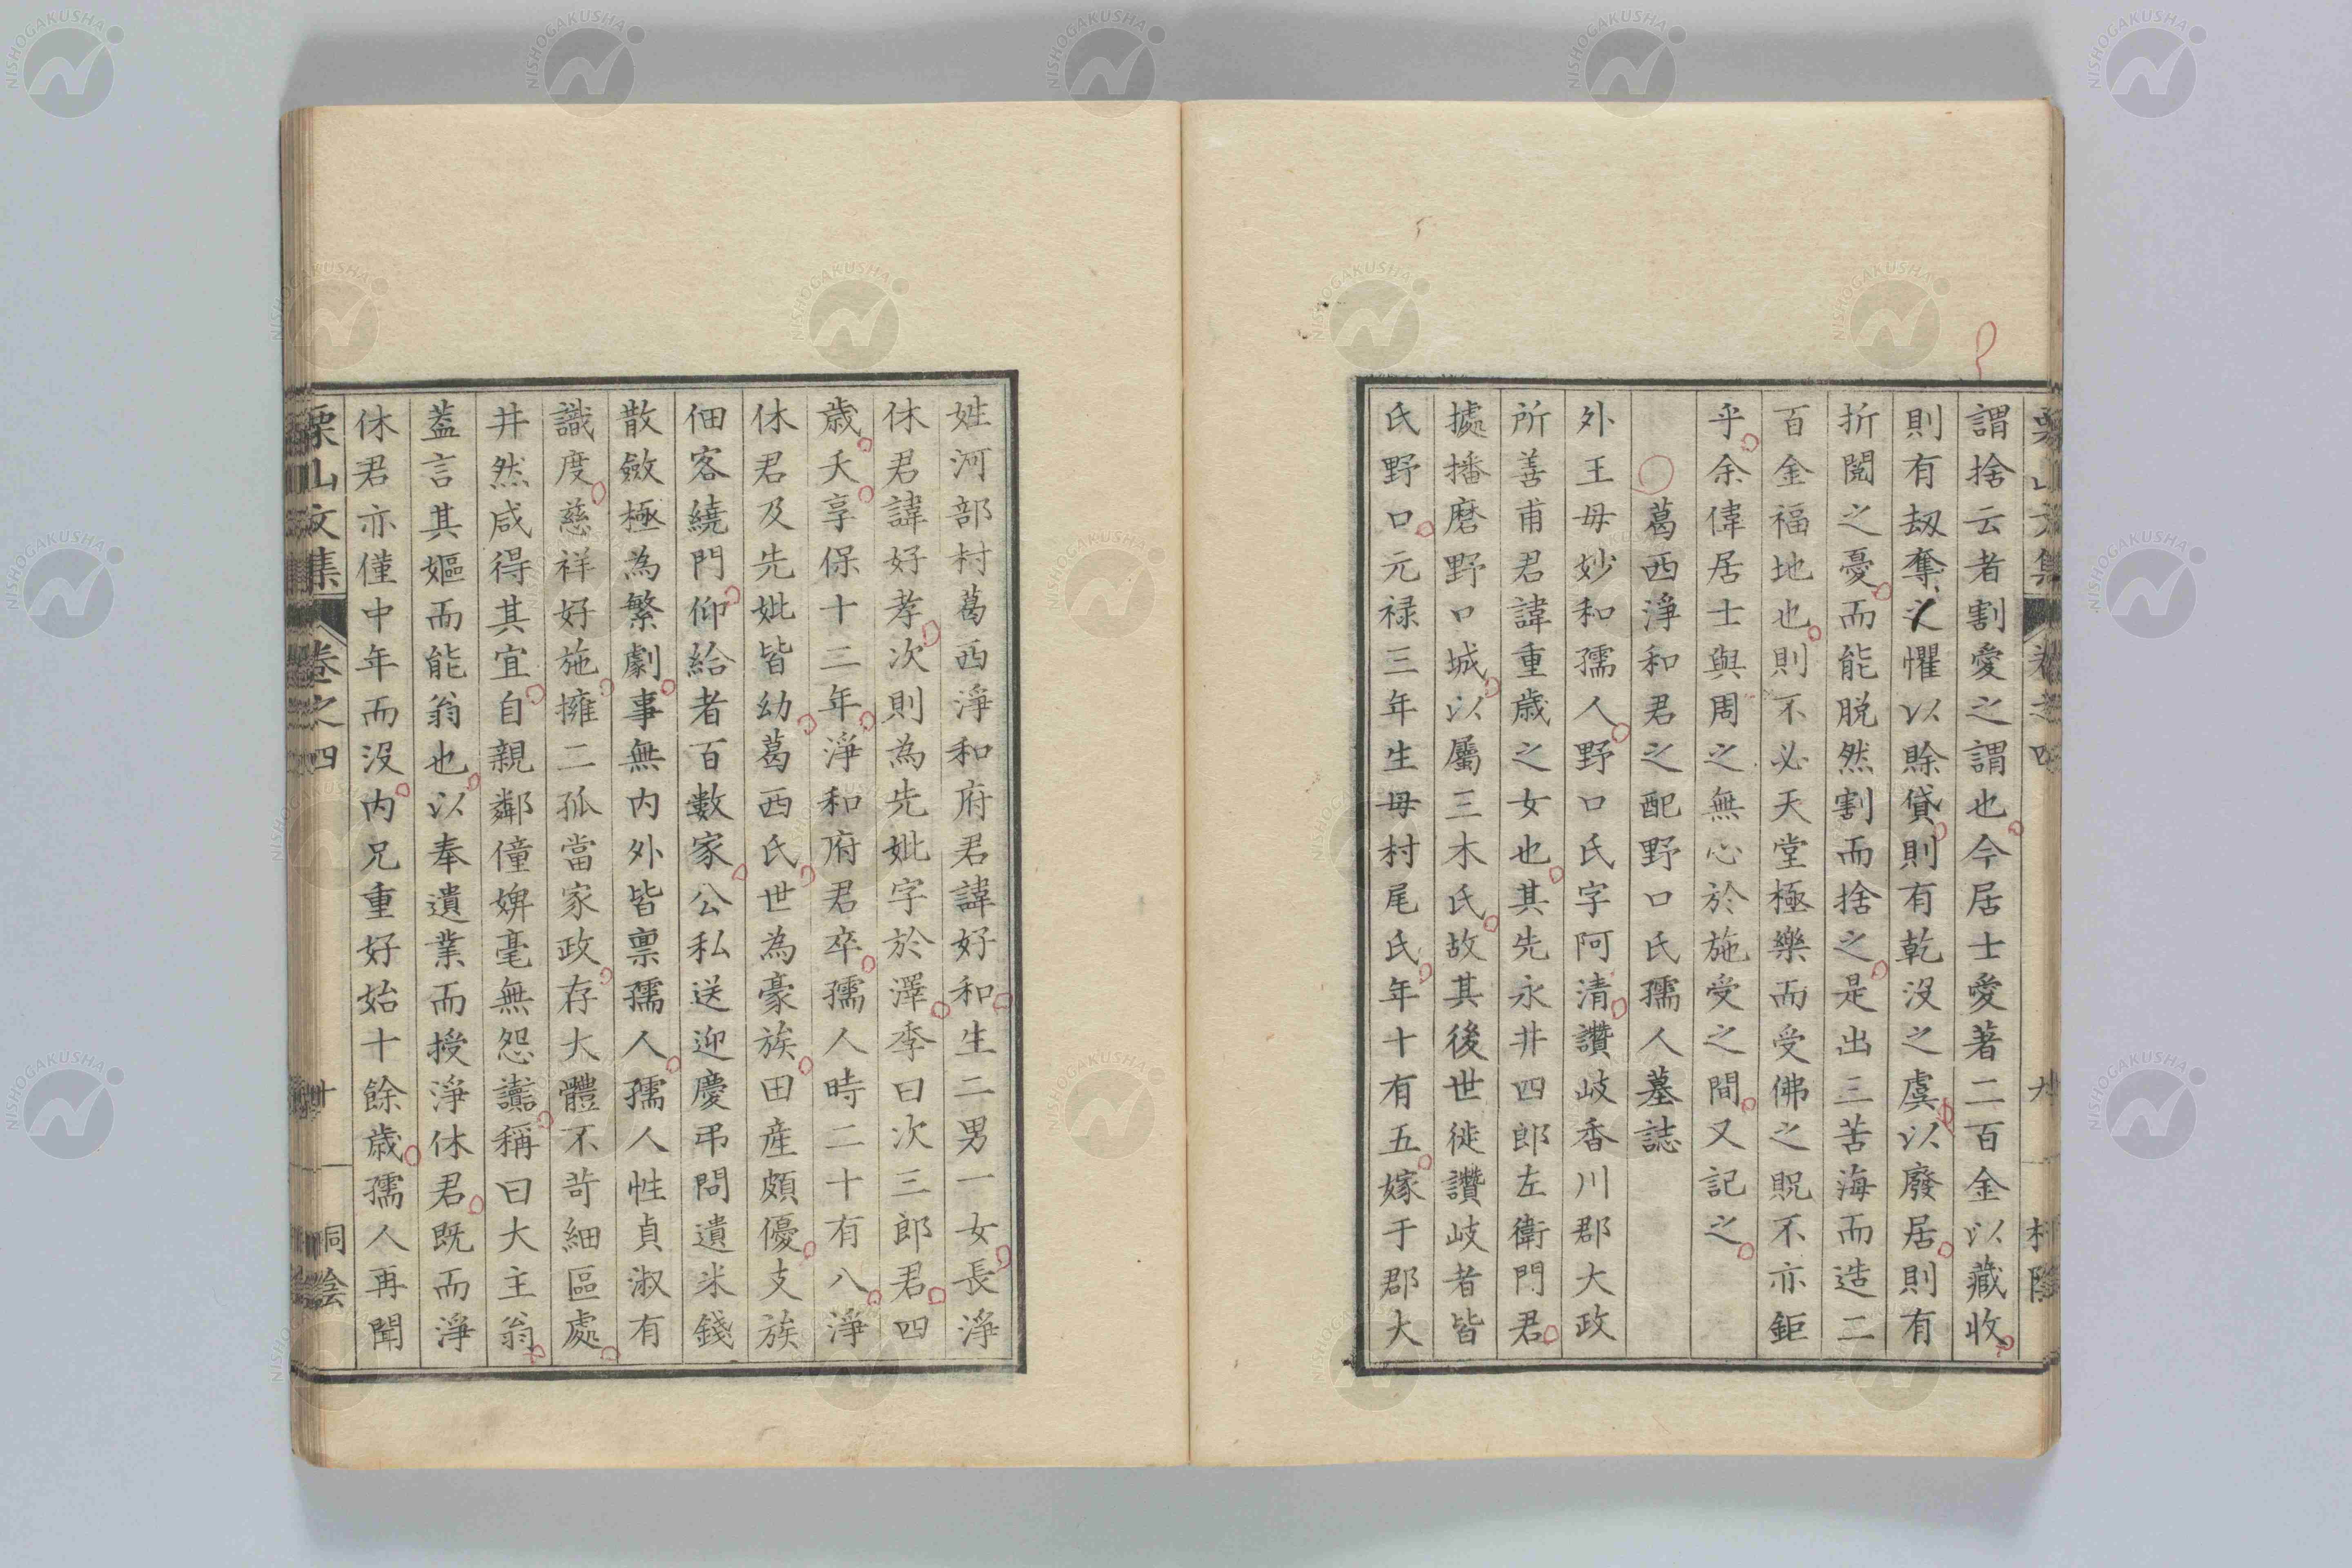 謂捨云者割愛之謂也今居士愛著二百金以藏收
則有劫奪之懼以賖貸則有乾沒之虞以廢居則有
折閲之憂而能脱然割而捨之是出三苦海而造二
百金福地也則不必天堂極樂而受佛之貺不亦鉅
乎余偉居士與周之無心於施受之間又記之
葛西淨和君之配野口氏孺人墓誌
外王母妙和孺人野口氏字阿清讚岐香川郡大政
所善甫君諱重歳之女也其先永井四郎左衛門君
據播磨野口城以屬三木氏故其後世徙讚岐者皆
氏野口元禄三年生母村尾氏年十有五嫁于郡大
姓河部村葛西淨和府君諱好和生二男一女長淨
休君諱好孝次則為先妣字於澤季曰次三郎君四
歳夭享保十三年淨和府君卒孺人時二十有八淨
休君及先妣皆幼葛西氏世為豪族田産頗優支族
佃客繞門仰給者百數家公私送迎慶弔問遺米錢
散斂極為繁劇事無内外皆禀孺人孺人性貞淑有
識度慈祥好施擁二孤當家政存大體不苛細區處
井然咸得其宜自親鄰僮婢毫無怨讟稱曰大主翁
蓋言其嫗而能翁也以奉遺業而授淨休君既而淨
休君亦僅中年而沒内兄重好始十餘歳孺人再聞
栗山文集 卷之四 十 同陰